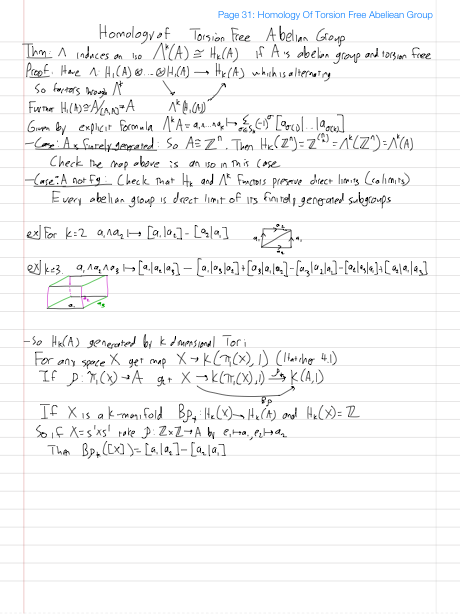 Page 31: Homology Of Torsion Free Abeliean Group
Homology of Torsion Free Abelian Group
Thm: Λ induces an iso Λ^k(A) ≅ H_k(A) if A is abelian group and torsion free
Proof. Have Λ: H_1(A) ⊗ ... ⊗ H_1(A) → H_k(A) which is alternating
So factors through Λ^k
Further H_1(A) ≅ A/[A,A] = A Λ^k(H_1(A))
Given by explicit formula Λ^k A = a_1 ∧ ... ∧ a_k ↦ Σ_{σ∈S_k} (-1)^σ [a_σ(1)| ... |a_σ(k)]
- Case: A is finitely generated: So A ≅ ℤ^n. Then H_k(ℤ^n) = ℤ^(n k) = Λ^k(ℤ^n) = Λ^k(A)
Check the map above is an iso in this case
- Case: A not f.g: Check that H_k and Λ^k functors preserve direct limits (colimits)
Every abelian group is direct limit of its finitely generated subgroups
ex] For k=2 a_1 ∧ a_2 ↦ [a_1|a_2] - [a_2|a_1]
a_2
a_1 a_1
a_2
ex] k=3. a_1 ∧ a_2 ∧ a_3 ↦ [a_1|a_2|a_3] - [a_1|a_3|a_2] + [a_3|a_1|a_2] - [a_3|a_2|a_1] - [a_2|a_1|a_3] + [a_2|a_3|a_1]
a_2
a_1 a_3
- So H_k(A) generated by k dimensional Tori
For any space X get map X → K(π_1(X), 1) (Hatcher 4.1)
If ρ: π_1(X) → A get X → K(π_1(X), 1) → K(A, 1)
Bρ
If X is a k-manifold Bρ_*: H_k(X) → H_k(A) and H_k(X) = ℤ
So if X = S^1 × S^1 take ρ: ℤ × ℤ → A by e_1 ↦ a_1, e_2 ↦ a_2
Then Bρ_*([X]) = [a_1|a_2] - [a_2|a_1]